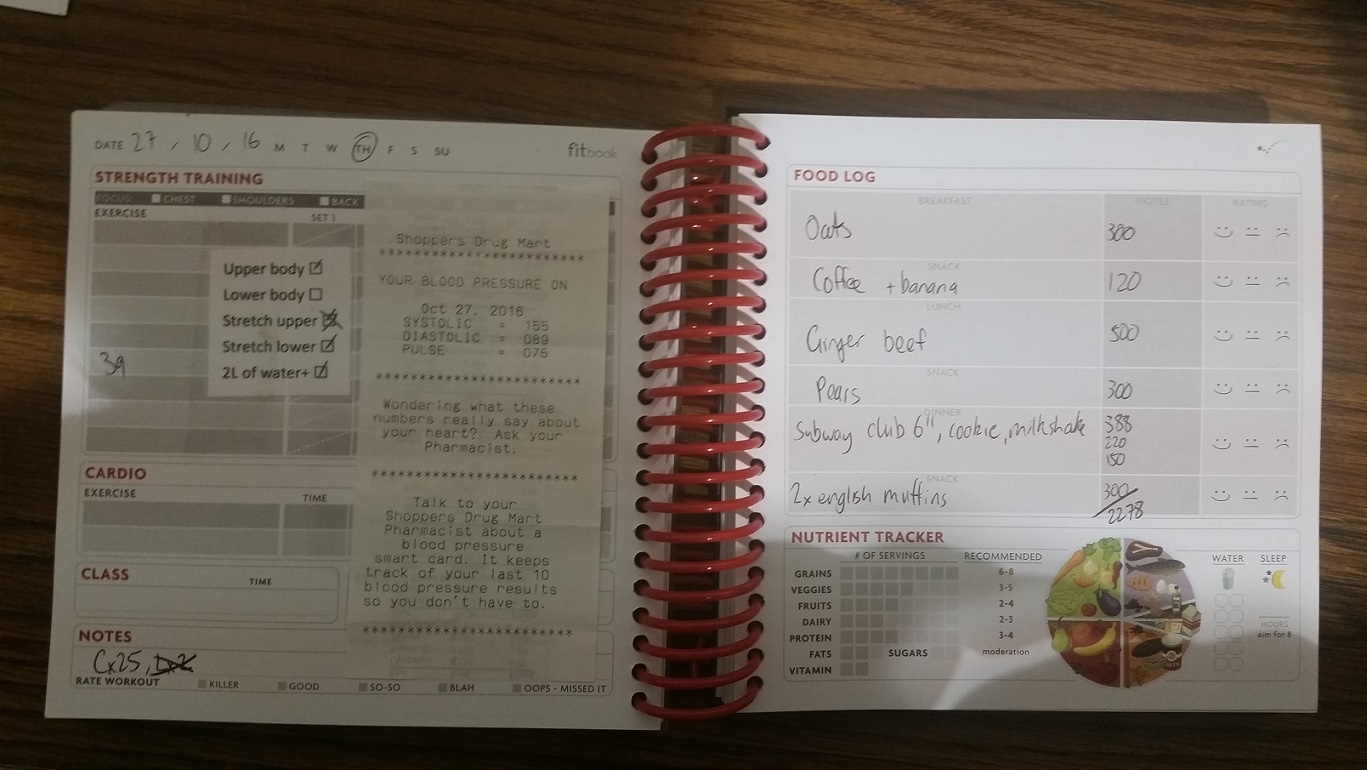 DATE 27 / 10 / 16 M T W TH F S SU
fitbook
STRENGTH TRAINING
FOCUS CHEST SHOULDERS BACK
EXERCISE SET 1
Upper body ☑
Lower body ☐
Stretch upper ☒
Stretch lower ☑
2L of water+ ☑
39
CARDIO
EXERCISE TIME
CLASS TIME
NOTES
Cx25,
RATE WORKOUT KILLER GOOD SO-SO BLAH OOPS - MISSED IT
Shoppers Drug Mart
**************************
YOUR BLOOD PRESSURE ON
Oct 27, 2016
SYSTOLIC = 155
DIASTOLIC = 089
PULSE = 075
**************************
Wondering what these
numbers really say about
your heart? Ask your
Pharmacist.
**************************
Talk to your
Shoppers Drug Mart
Pharmacist about a
blood pressure
smart card. It keeps
track of your last 10
blood pressure results
so you don't have to.
**************************
FOOD LOG
BREAKFAST NOTES RATING
Oats 300
SNACK
Coffee + banana 120
LUNCH
Ginger beef 500
SNACK
Pears 300
DINNER
Subway club 6", cookie, milkshake 388
220
150
SNACK
2x english muffins 300/
2278
NUTRIENT TRACKER
# OF SERVINGS RECOMMENDED WATER SLEEP
GRAINS 6-8
VEGGIES 3-5
FRUITS 2-4
DAIRY 2-3
PROTEIN 3-4
FATS SUGARS moderation
VITAMIN
HOURS
aim for 8